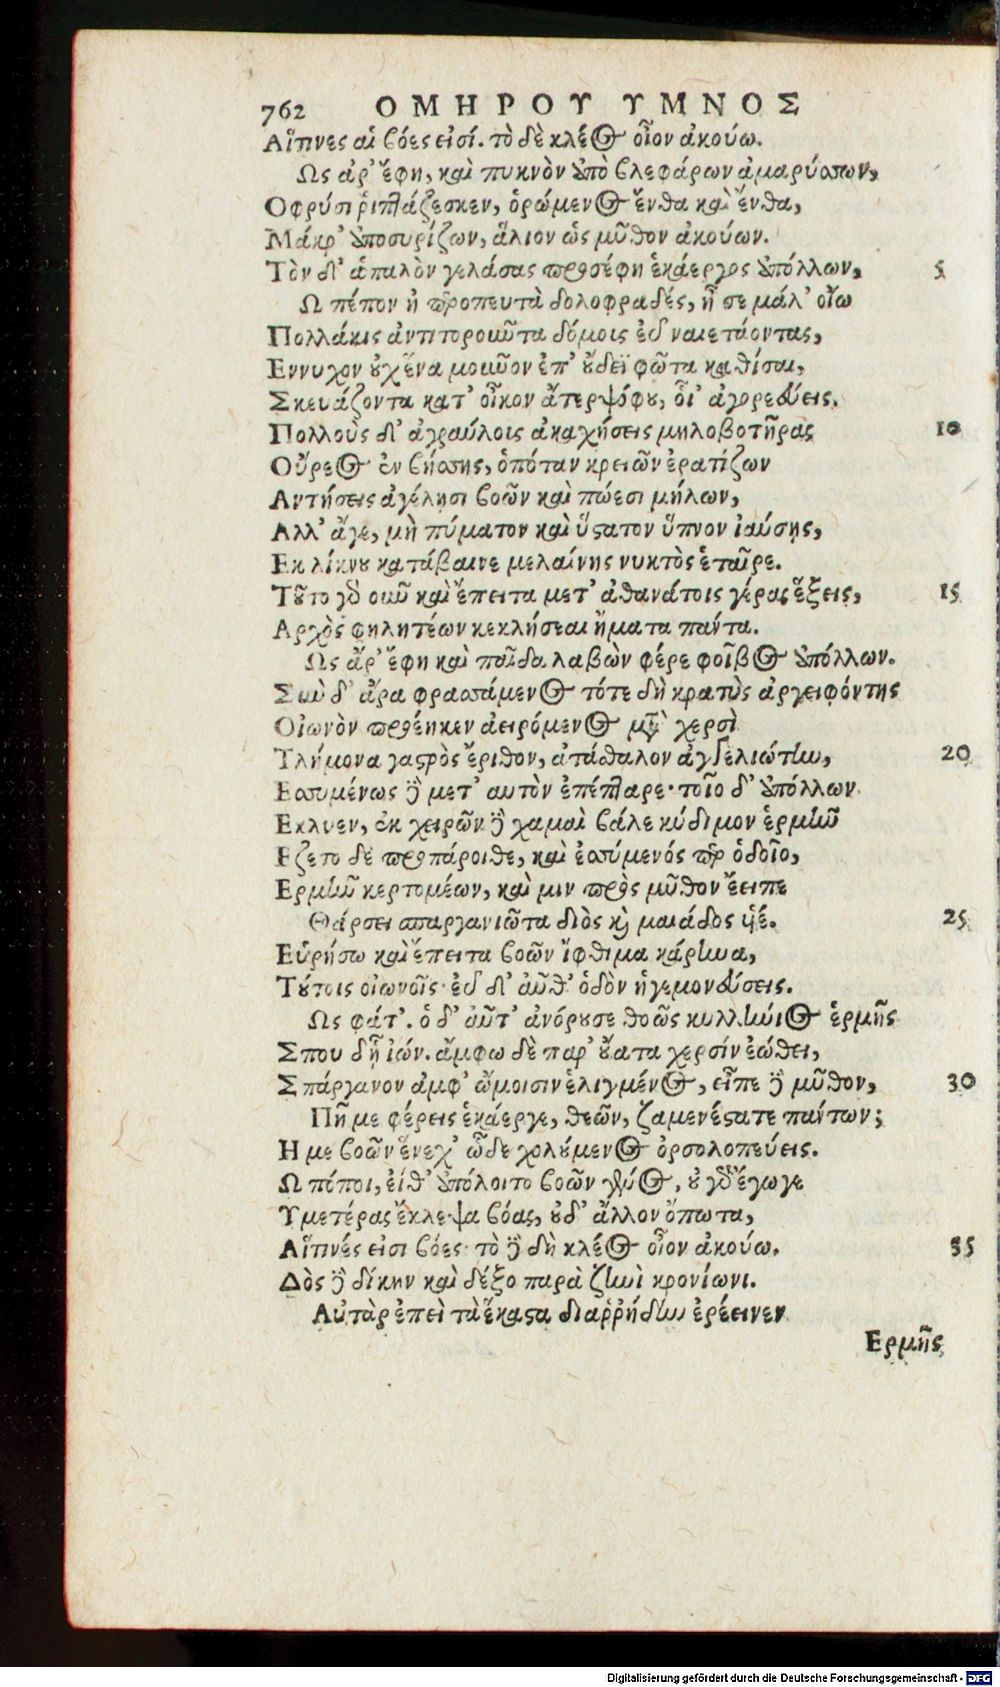 762 ΟΜΗΡΟΥ ΥΜΝΟΣ
Αἵπνες αἱ βόες εἰσί. τὸ δὲ κλέος οἶον ἀκούω.
Ως ἀρ' ἔφη, καὶ πυκνὸν ἀπὸ βλεφάρων ἀμαρύσσων,
Οφρύσι ῥιπτάζεσκεν, ὁρώμενος ἔνθα καὶ ἔνθα,
Μάκρ' ἀποσυρίζων, ἅλιον ὡς μῦθον ἀκούων.
Τὸν δ' ἁπαλὸν γελάσας προσέφη ἑκάεργος ἀπόλλων, 5
Ω πέπον ἠπεροπευτὰ δολοφραδές, ἦ σε μάλ' οἴω
Πολλάκις ἀντιτοροῦντα δόμοις εὖ ναιετάοντας,
Εννυχον οὐχ ἕνα μοῦνον ἐπ' οὔδεϊ φῶτα καθίσαι,
Σκευάζοντα κατ' οἶκον ἄτερ ψόφου, οἷ' ἀγορεύεις.
Πολλοὺς δ' ἀγραύλοις ἀκαχήσεις μηλοβοτῆρας 10
Οὔρεος ἐν βήσσης, ὁπόταν κρειῶν ἐρατίζων
Αντήσεις ἀγέλησι βοῶν καὶ πώεσι μήλων,
Αλλ' ἄγε, μὴ πύματον καὶ ὕστατον ὕπνον ἰαύσῃς,
Εκ λίκνου κατάβαινε μελαίνης νυκτὸς ἑταῖρε.
Τοῦτο γὰρ οὖν καὶ ἔπειτα μετ' ἀθανάτοις γέρας ἕξεις, 15
Αρχὸς φηλητέων κεκλήσεαι ἤματα πάντα.
Ως ἄρ' ἔφη καὶ παῖδα λαβὼν φέρε φοῖβος ἀπόλλων.
Σὺν δ' ἄρα φρασσάμενος τότε δὴ κρατὺς ἀργειφόντης
Οἰωνὸν προέηκεν ἀειρόμενος μετὰ χερσὶ
Τλήμονα γαστρὸς ἔριθον, ἀτάσθαλον ἀγγελιώτην, 20
Εσσυμένως δὲ μετ' αυτὸν ἐπέπταρε· τοῖο δ' ἀπόλλων
Εκλυεν, ἐκ χειρῶν δὲ χαμαὶ βάλε κύδιμον ἑρμῆν
Εζετο δὲ προπάροιθε, καὶ ἐσσύμενός περ ὁδοῖο,
Ερμῆν κερτομέων, καὶ μιν πρὸς μῦθον ἔειπε
Θάρσει σπαργανιῶτα διὸς καὶ μαιάδος ὑέ. 25
Εὑρήσω καὶ ἔπειτα βοῶν ἴφθιμα κάρηνα,
Τούτοις οἰωνοῖς· εὖ δ' αὖθ' ὁδὸν ἡγεμονεύσεις.
Ως φάτ'. ὁ δ' αὖτ' ἀνόρουσε θοῶς κυλλήνιος ἑρμῆς
Σπουδῇ ἰών. ἄμφω δὲ παρ' οὔατα χερσὶν ἐώθει,
Σπάργανον ἀμφ' ὤμοισιν ἐλιγμένος, εἶπε δὲ μῦθον, 30
Πῆ με φέρεις ἑκάεργε, θεῶν, ζαμενέστατε πάντων;
Η με βοῶν ἕνεχ' ὧδε χολούμενος ὀρσολοπεύεις.
Ω πόποι, εἴθ' ἀπόλοιτο βοῶν γένος, οὐ γὰρ ἔγωγε
Υμετέρας ἔκλεψα βόας, οὐδ' ἄλλον ὄπωπα,
Αἵπνές εἰσι βόες· τὸ δὲ δὴ κλέος οἶον ἀκούω. 35
Δὸς δὲ δίκην καὶ δέξο παρὰ ζηνὶ κρονίωνι.
Αὐτὰρ ἐπεὶ τὰ ἕκαστα διαῤῥήδην ἐρέεινεν
Ερμῆς
Digitalisierung gefördert durch die Deutsche Forschungsgemeinschaft - DFG